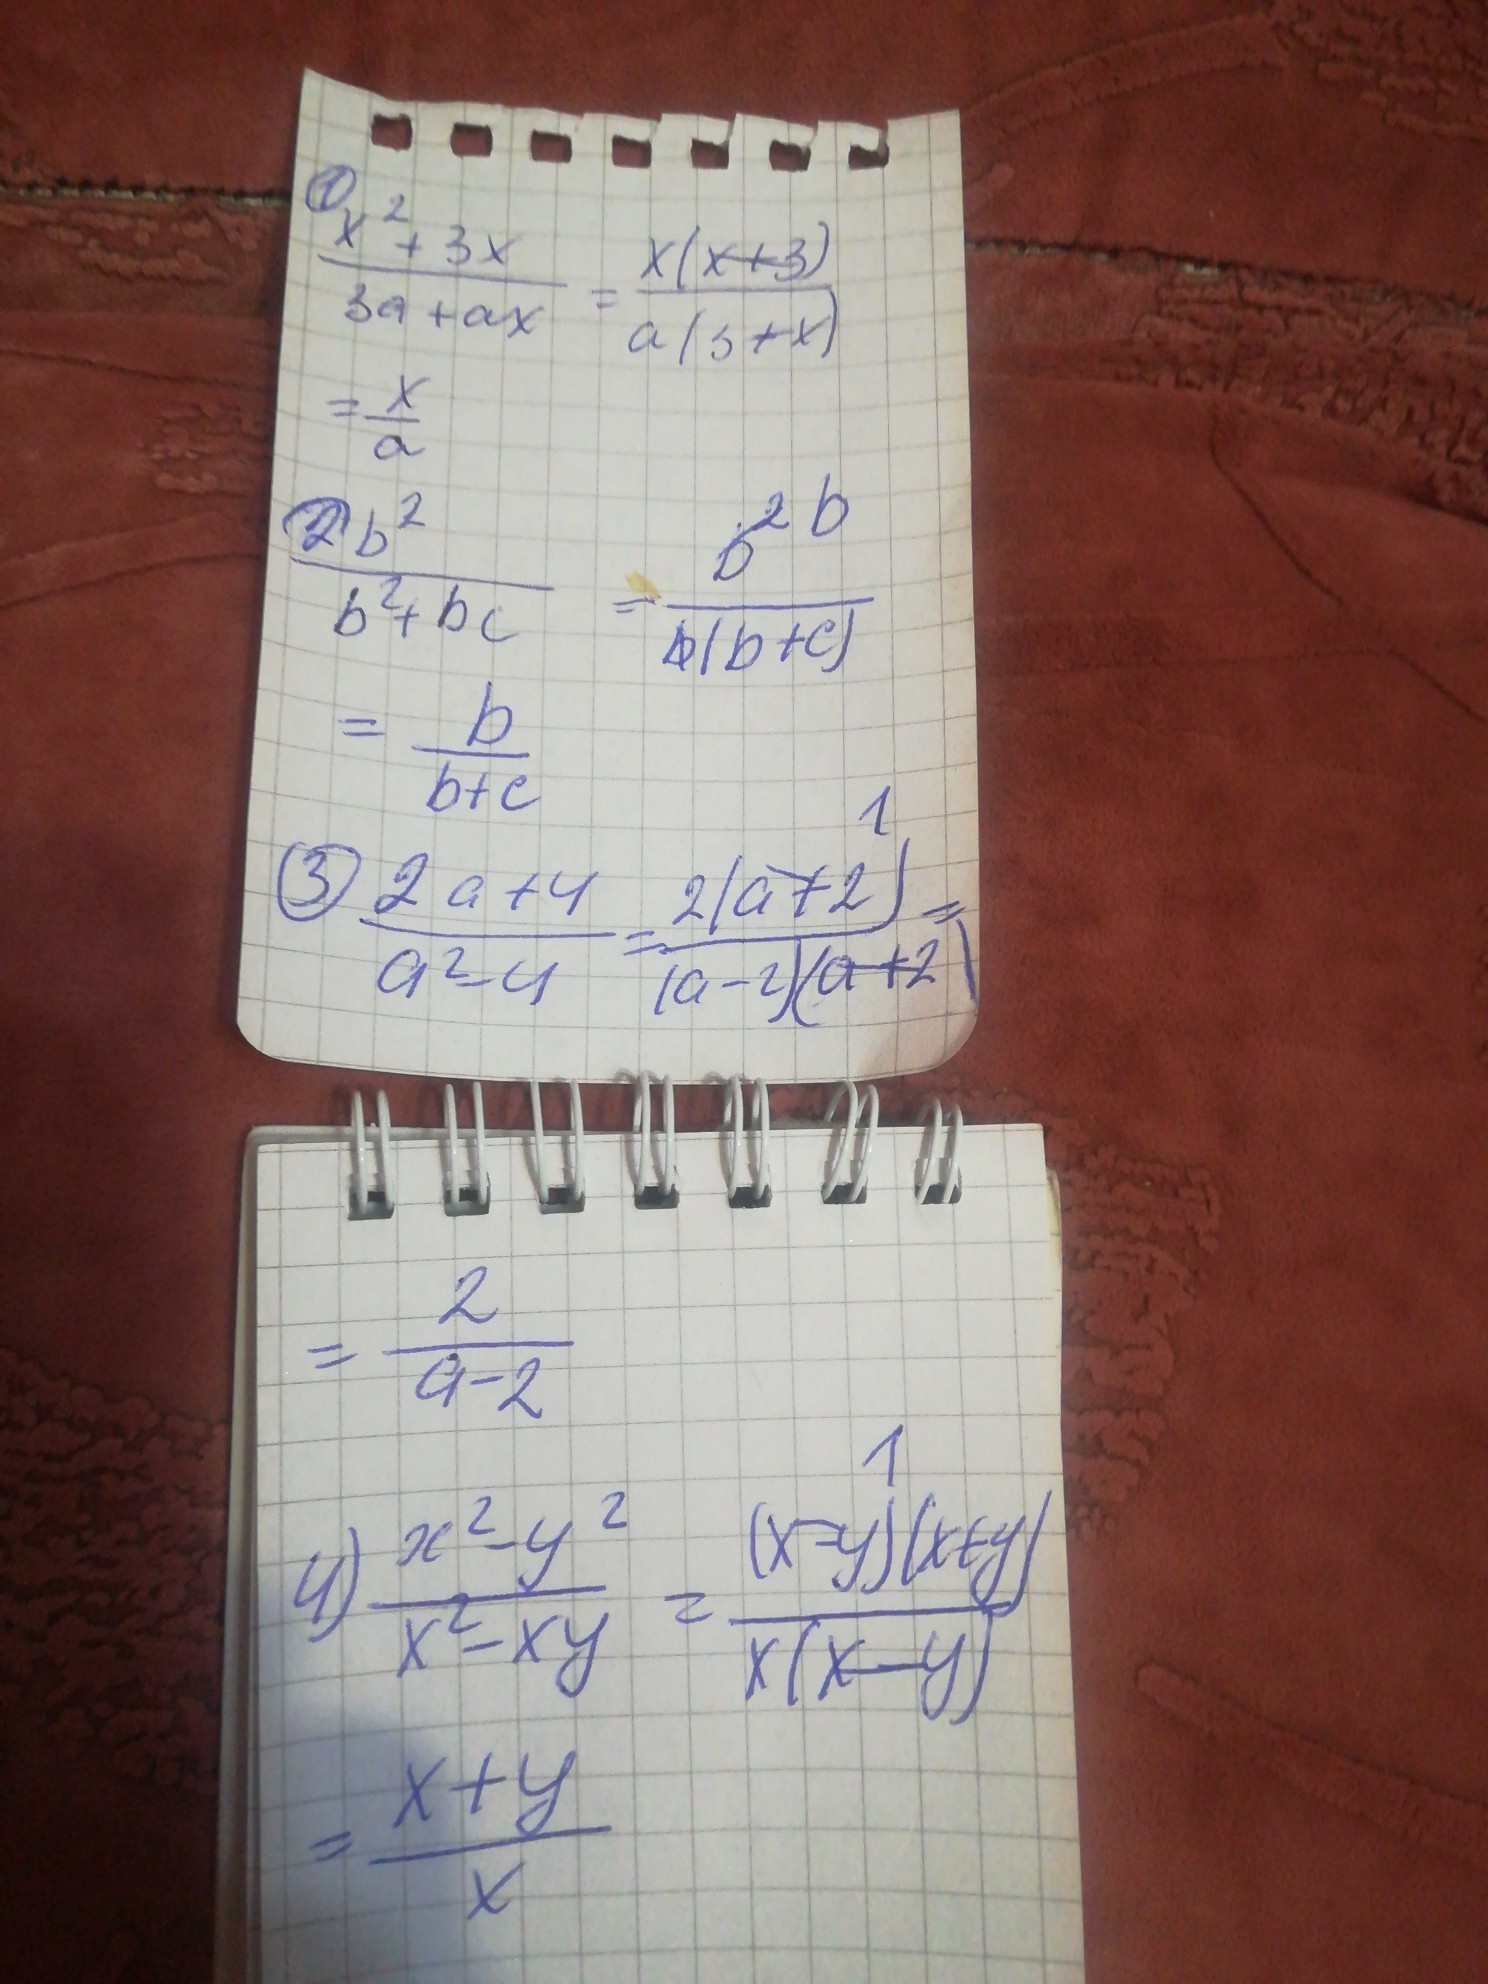 ① (x² + 3x)/(3a + ax) = x(x+3)/(a(3+x))
= x/a
② b²/(b² + bc) = b² b/(b(b+c))
= b/(b+c)
③ (2a+4)/(a²-4) = 2(a+2) 1/((a-2)(a+2)) =
= 2/(a-2)
4) (x²-y²)/(x²-xy) = (x-y)(x+y) 1/(x(x-y))
= (x+y)/x